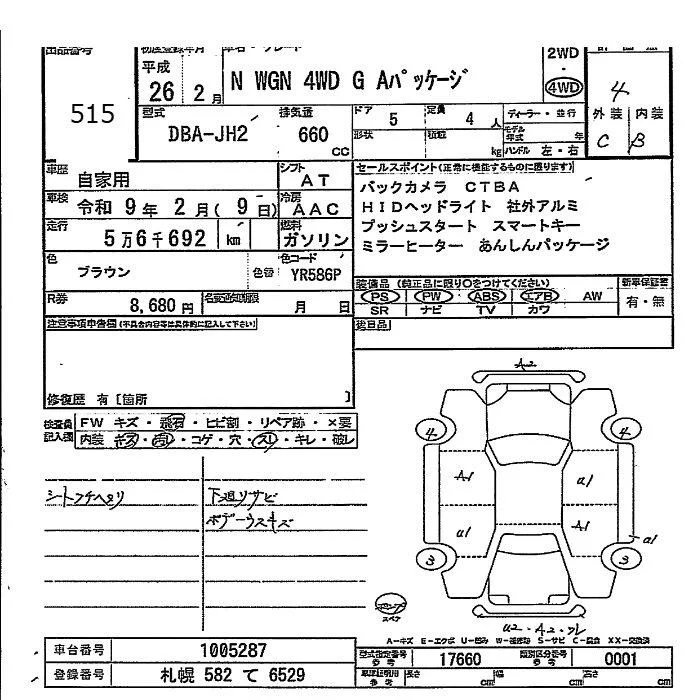 出品番号
515
初度登録年月
平成
26年2月
車名・グレード
N WGN 4WD G Aパッケージ
2WD
・
4WD
4
外装 内装
C B
型式
DBA-JH2
排気量
660
CC
ドア 5
定員 4人
形状
積載 kg
ディーラー・並行
モデル年式 年
ハンドル 左・右
車歴
自家用
シフト
AT
車検
令和 9年 2月( 9日)
冷房
AAC
走行
5万6千692 km
燃料
ガソリン
色
ブラウン
色替
色コード
YR586P
R券
8,680円
名変通知期限
月 日
セールスポイント(正常に機能するものに限ります)
バックカメラ CTBA
HIDヘッドライト 社外アルミ
プッシュスタート スマートキー
ミラーヒーター あんしんパッケージ
装備品 (純正品に限り○をつけてください)
新車保証書
PS PW ABS エアB AW
有・無
SR ナビ TV カワ
後日品
注意事項申告欄(不具合内容等は具体的に記入して下さい)
修復歴 有[箇所 ]
検査員記入欄
FW キズ・飛石・ヒビ割・リペア跡・×要
内装 キズ・汚レ・コゲ・穴・スレ・キレ・破レ
シートフチヘタリ
下廻りサビ
ボデーウスキズ
A2
4 4
A1 U1
U1 A1
U1
3 3
スペア
U2・A2・ワレ
A-キズ E-エクボ U-凹み W-補修跡 S-サビ C-腐食 XX-交換済
車台番号
1005287
登録番号
札幌 582 て 6529
型式指定番号
参考
17660
類別区分番号
参考
0001
車庫証明用
参考
長さ cm
幅 cm
高さ cm